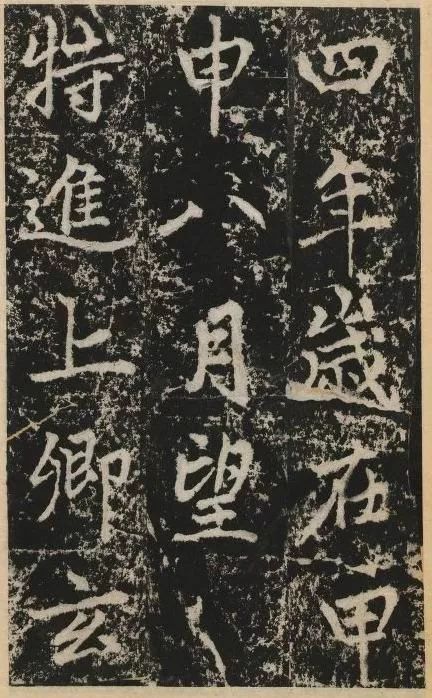 四年歲在甲
申八月望
特進上卿玄